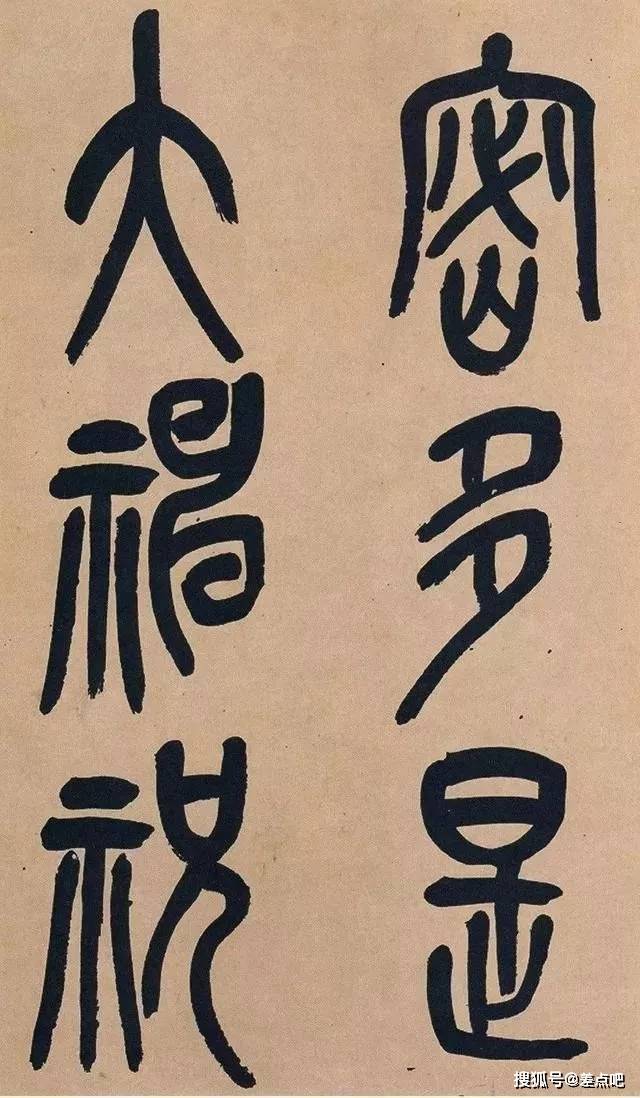 密多是
大神祝
搜狐号@差点吧